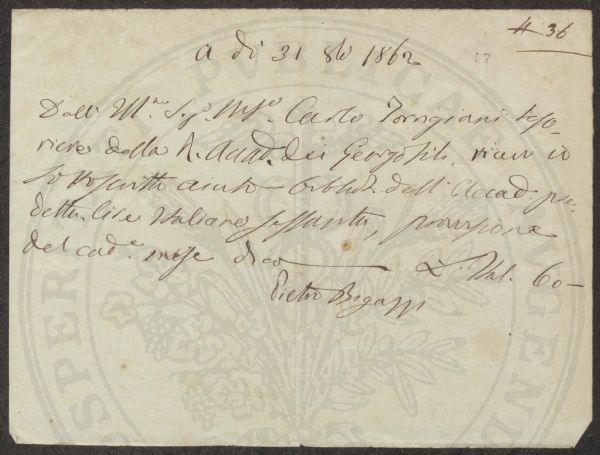 # 36
A dì 31 8bre 1862
17
Dall' Ill.mo Sig. Mse. Carlo Torrigiani teso-
riere della R. Accad. dei Georgofili, ricevo io
sottoscritto aiuto Bibliot. dell' Accad. pre-
detta lire Italiane sessanta, provvisione
del cad.e mese dico L. Ital. 60—
Pietro Bigazzi
PROSPERITATI PUBLICAE AUGENDAE